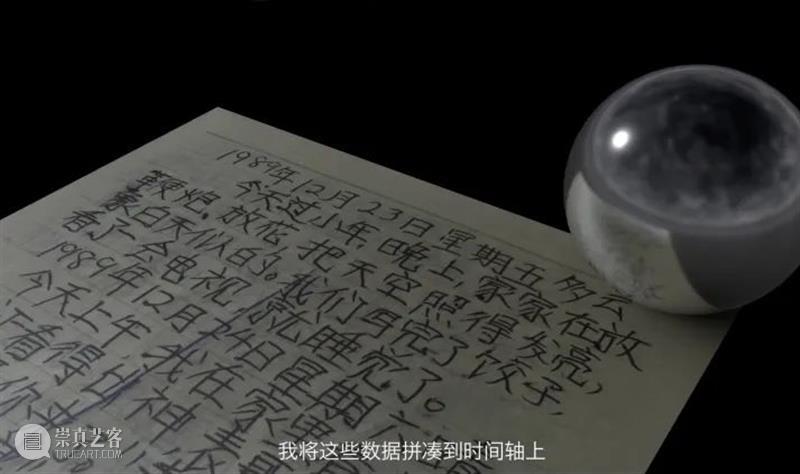 1989年12月23日星期五 多云
今天过小年,晚上,家家在放
鞭炮,放花,把天空照得发亮,
象白天似的。我们吃完了饺子,
看了一会电视,就睡觉了。
1989年12月24日星期六
今天上午 我在
看得出神
你
我将这些数据拼凑到时间轴上
崇真艺客
TRUEART.COM